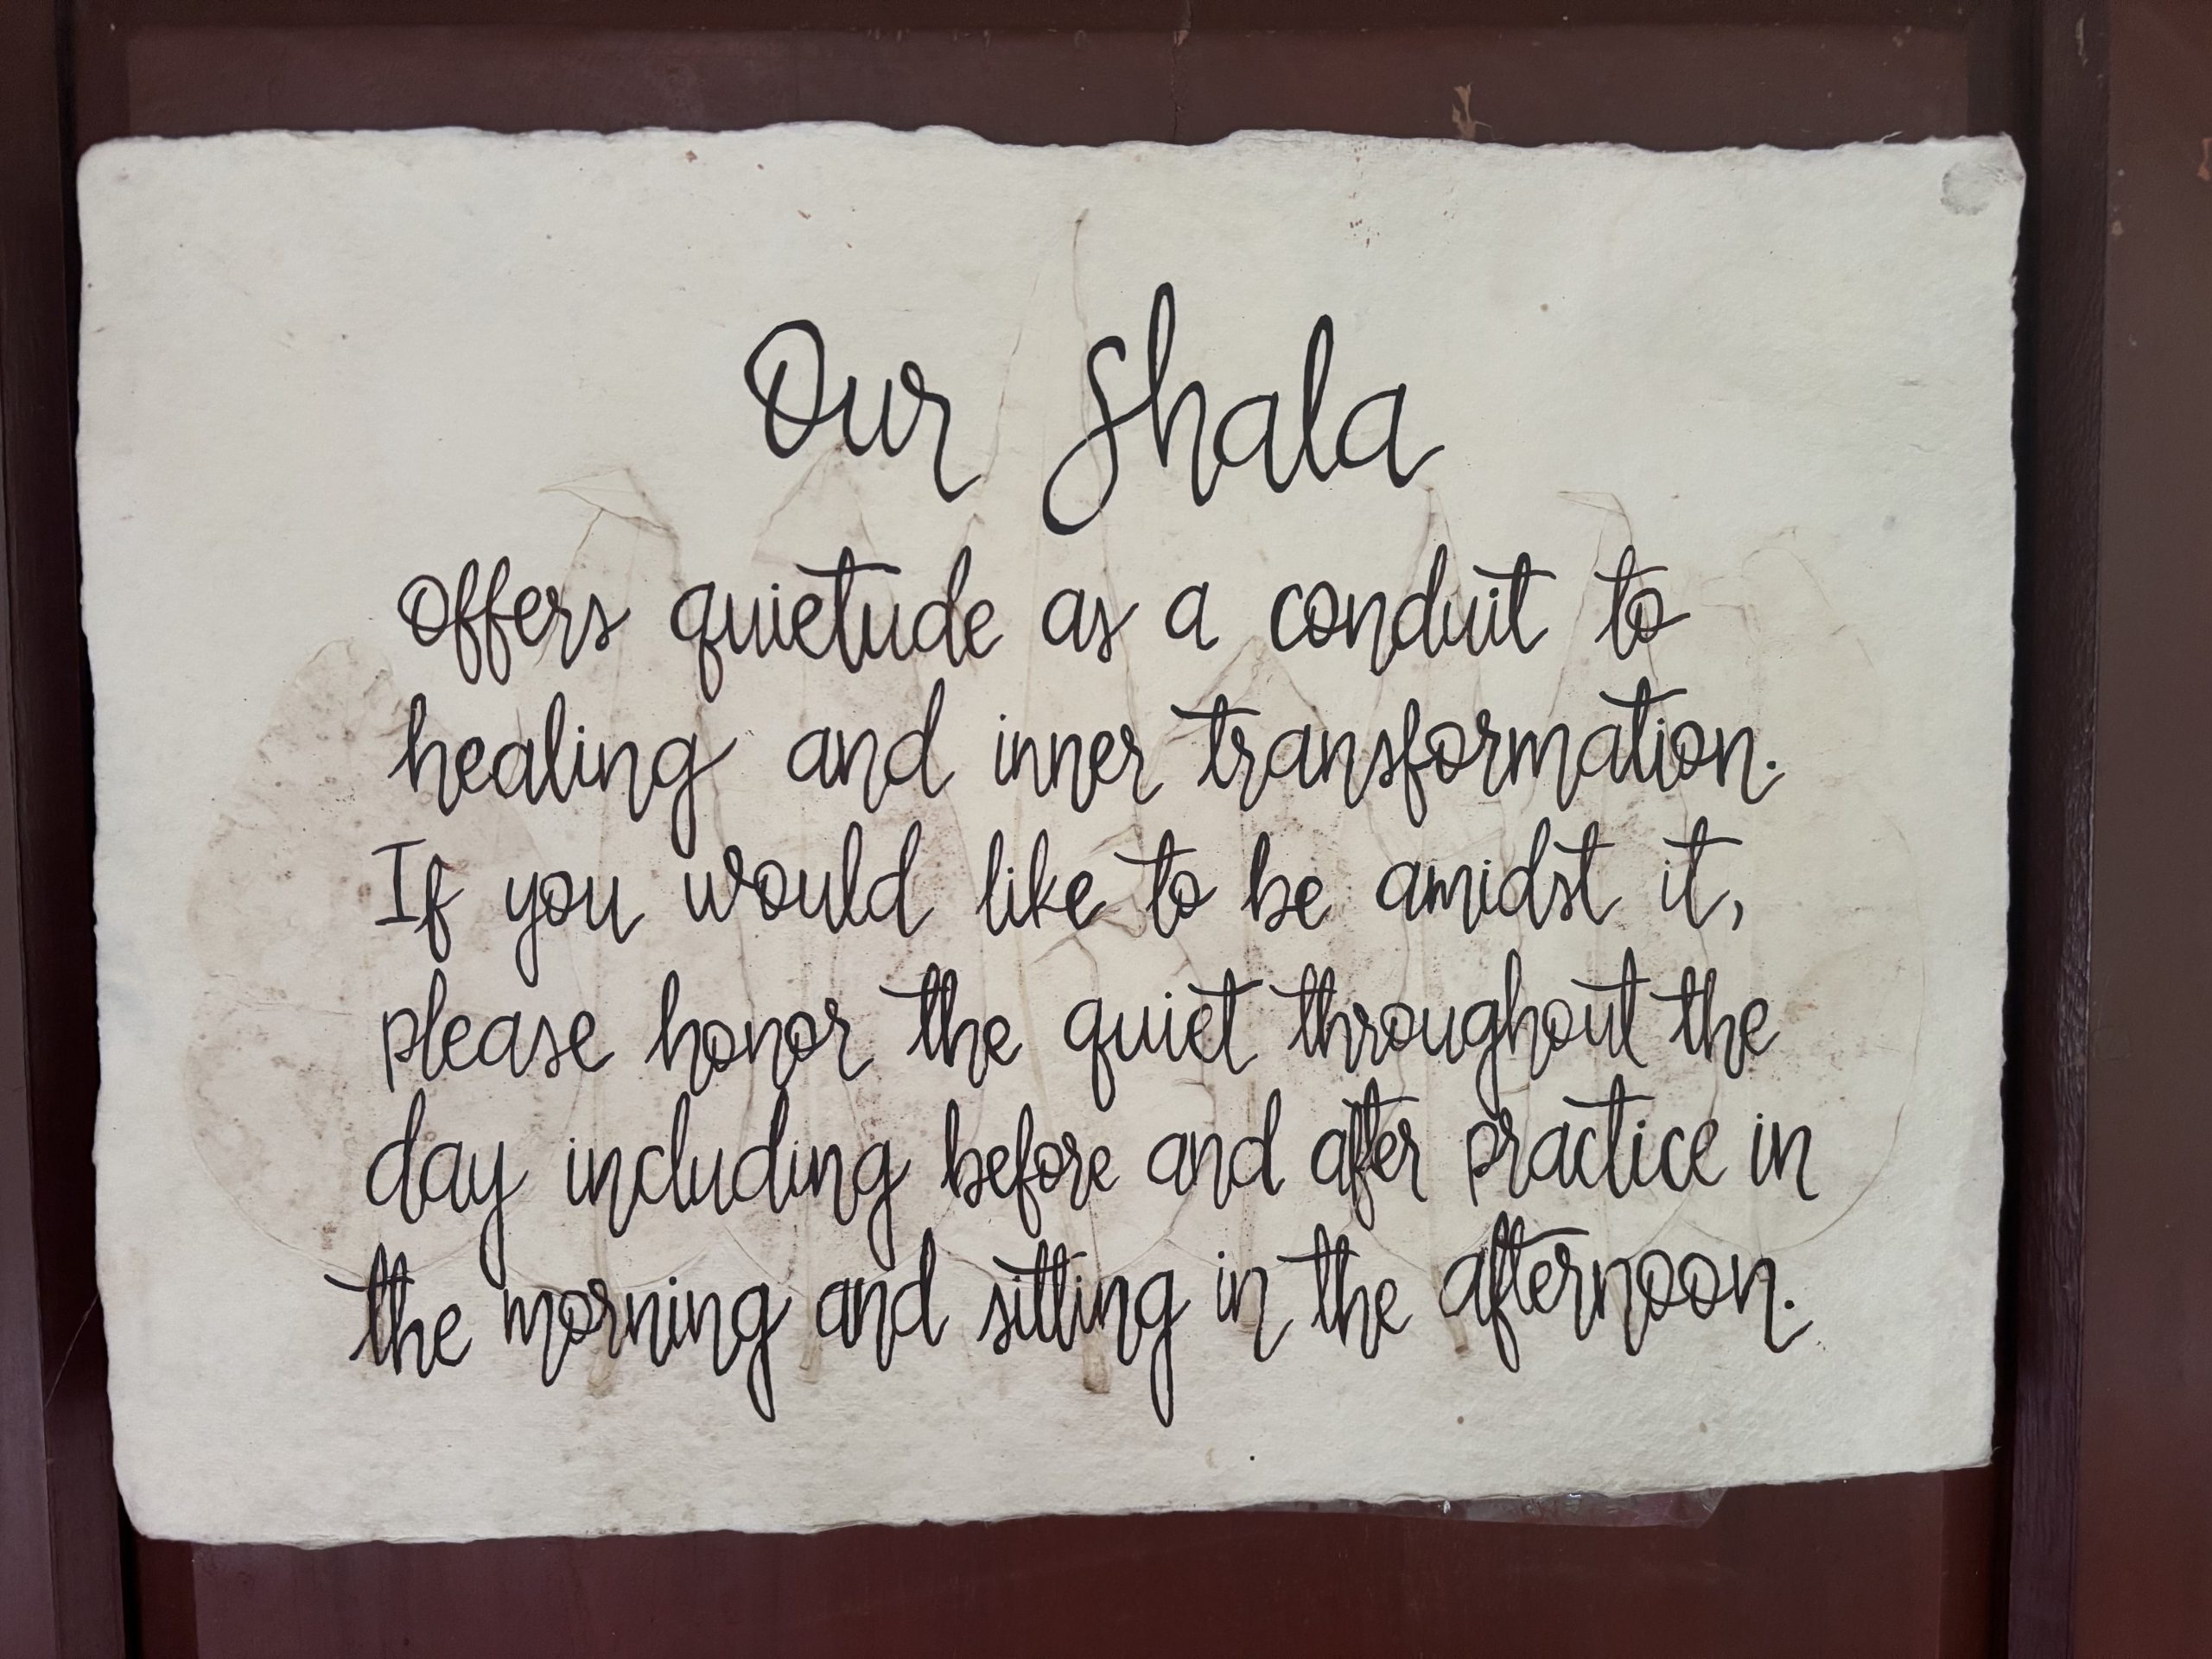 Our Shala
offers quietude as a conduit to
healing and inner transformation.
If you would like to be amidst it,
please honor the quiet throughout the
day including before and after practice in
the morning and sitting in the afternoon.